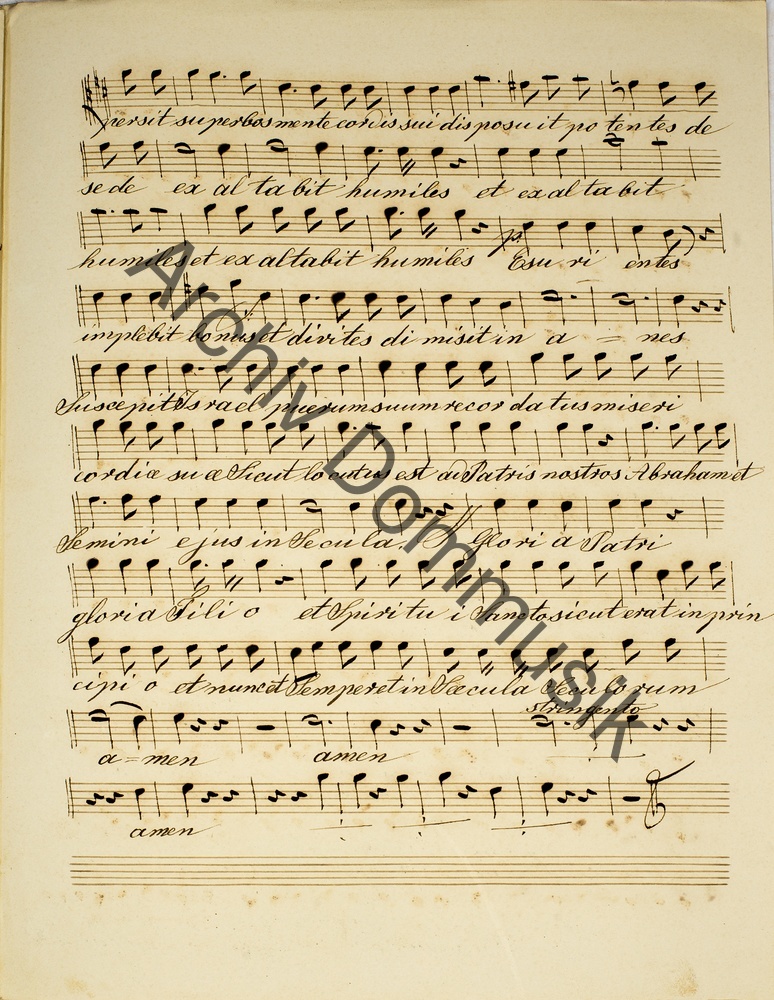 persit superbos mente cordis sui disposuit potentes de
sede exaltabit humiles et exaltabit
humiles et exaltabit humiles Esuri entes
implebit bonis et divites di misit in a = nes
Suscepit Israel puerum suum recordatus miseri
cordiæ suæ Sicut locutus est ad Patris nostros Abraham et
Semini ejus in Secula. Glori a Patri
gloria Fili o et Spiritu i Sancto sicut erat in prin
cipi o et nunc et Semper et in Sæcula Seculorum
stringento
a = men amen
amen
Archiv Dommusik